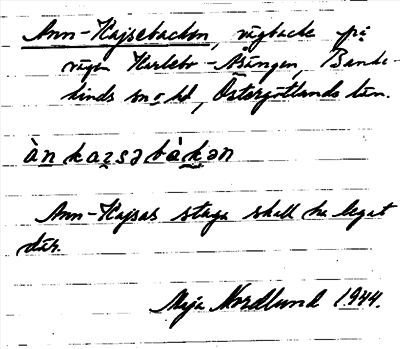 Ann-Kajsebacken, vägbacke på
vägen Karlebo-Åsungen, Banke-
kinds sn o hd, Östergötlands län.
ànkazsəbàkən
Ann-Kajsas stuga skall ha legat
där.
Maja Nordlund 1944.